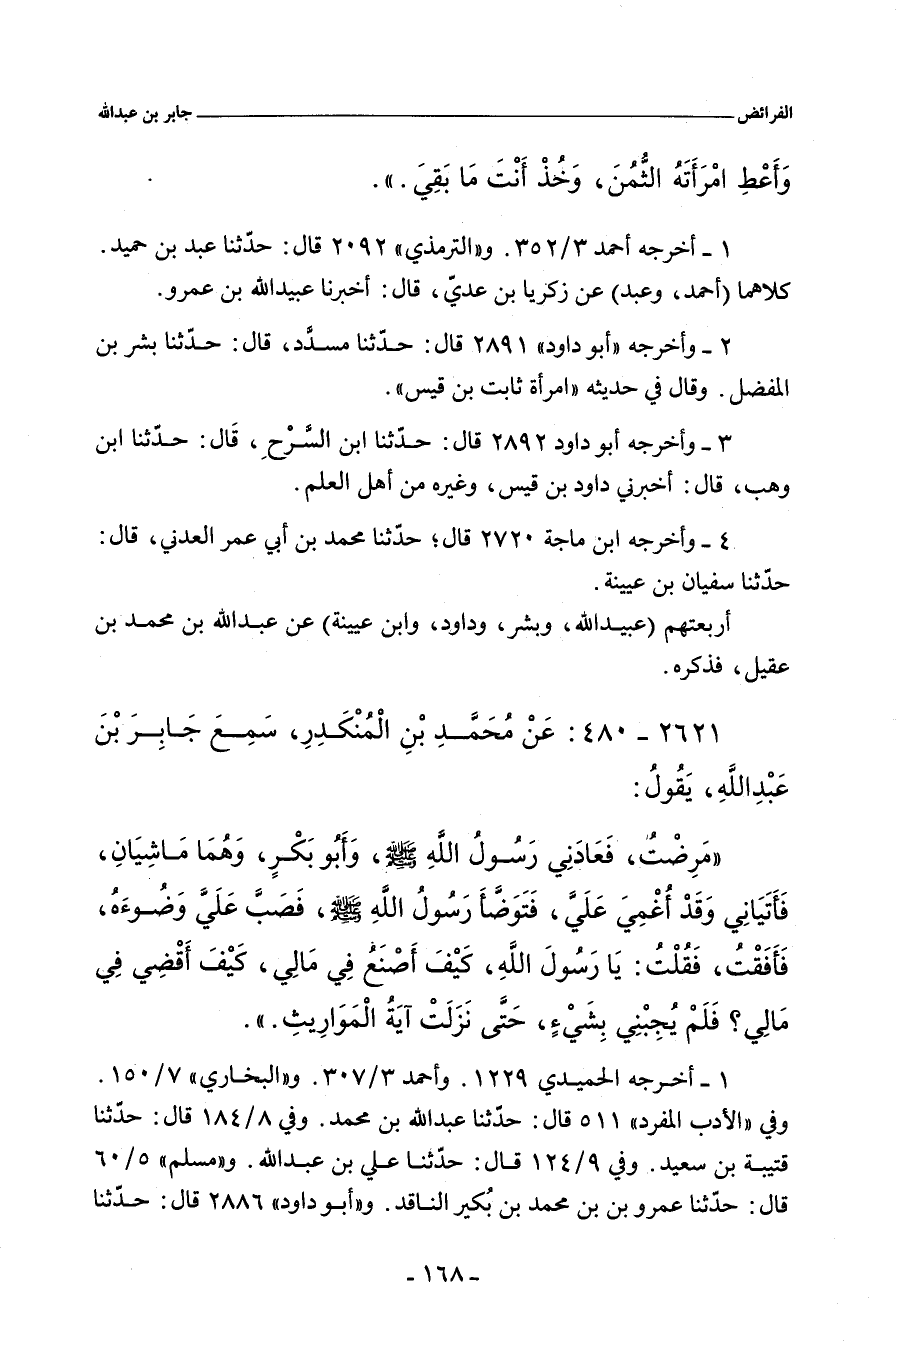 الفرائض ــــــــــــــــ جابر بن عبدالله
وَأَعْطِ امْرَأَتَهُ الثُّمُنَ، وَخُذْ أَنْتَ مَا بَقِيَ.».
١ ـ أخرجه أحمد ٣/٣٥٢. و«الترمذي» ٢٠٩٢ قال: حدّثنا عبد بن حميد.
كلاهما (أحمد، وعبد) عن زكريا بن عديّ، قال: أخبرنا عبيدالله بن عمرو.
٢ ـ وأخرجه «أبو داود» ٢٨٩١ قال: حدّثنا مسدَّد، قال: حدّثنا بشر بن
المفضل. وقال في حديثه «امرأة ثابت بن قيس».
٣ ـ وأخرجه أبو داود ٢٨٩٢ قال: حدّثنا ابن السَّرْحِ، قَال: حدّثنا ابن
وهب، قال: أخبرني داود بن قيس، وغيره من أهل العلم.
٤ ـ وأخرجه ابن ماجة ٢٧٢٠ قال؛ حدّثنا محمد بن أبي عمر العدني، قال:
حدّثنا سفيان بن عيينة.
أربعتهم (عبيدالله، وبشر، وداود، وابن عيينة) عن عبدالله بن محمد بن
عقيل، فذكره.
٢٦٢١ ـ ٤٨٠: عَنْ مُحَمَّدِ بْنِ الْمُنْكَدِرِ، سَمِعَ جَابِرَ بْنَ
عَبْدِاللَّهِ، يَقُولُ:
«مَرِضْتُ، فَعَادَنِي رَسُولُ اللَّهِ ﷺ، وَأَبُو بَكْرٍ، وَهُمَا مَاشِيَانِ،
فَأَتَيَانِي وَقَدْ أُغْمِيَ عَلَيَّ، فَتَوَضَّأَ رَسُولُ اللَّهِ ﷺ، فَصَبَّ عَلَيَّ وَضُوءَهُ،
فَأَفَقْتُ، فَقُلْتُ: يَا رَسُولَ اللَّهِ، كَيْفَ أَصْنَعُ فِي مَالِي، كَيْفَ أَقْضِي فِي
مَالِي؟ فَلَمْ يُجِبْنِي بِشَيْءٍ، حَتَّى نَزَلَتْ آيَةُ الْمَوَارِيثِ.».
١ ـ أخرجه الحميدي ١٢٢٩. وأحمد ٣/٣٠٧. و«البخاري» ٧/١٥٠.
وفي «الأدب المفرد» ٥١١ قال: حدّثنا عبدالله بن محمد. وفي ٨/١٨٤ قال: حدّثنا
قتيبة بن سعيد. وفي ٩/١٢٤ قال: حدّثنا علي بن عبدالله. و«مسلم» ٥/٦٠
قال: حدّثنا عمرو بن بن محمد بن بُكير الناقد. و«أبو داود» ٢٨٨٦ قال: حدّثنا
ـ ١٦٨ ـ